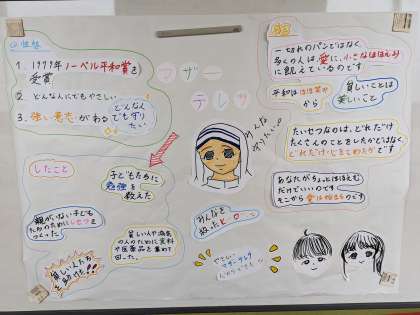 マザー
テレサ
1. 1979年ノーベル平和賞を
受賞
2. どんな人にでもやさしい
3. 強い意志がある
どんな人
でも守り
たい
したこと
子どもたちに
勉強を
教えた
親がいない子ども
たちのために
つくった
貧しい人や病気
の人のために食料
や医薬品を集めて
回った。
貧しい人たち
を助けた!!
みんな
守りたい
みんなを
救ったヒーロー
やさしい
マザーテレサ
一切れのパンではなく、
多くの人は、愛に、小さなほほえみ
に飢えているのです
平和は ほほ笑み
から
貧しいことは
美しいこと
たいせつなのは、どれだけ
たくさんのことをしたかではなく、
どれだけ心をこめたかです
あなたがちょっとほほえむ
だけでいいのです
そこから愛は始まるのです